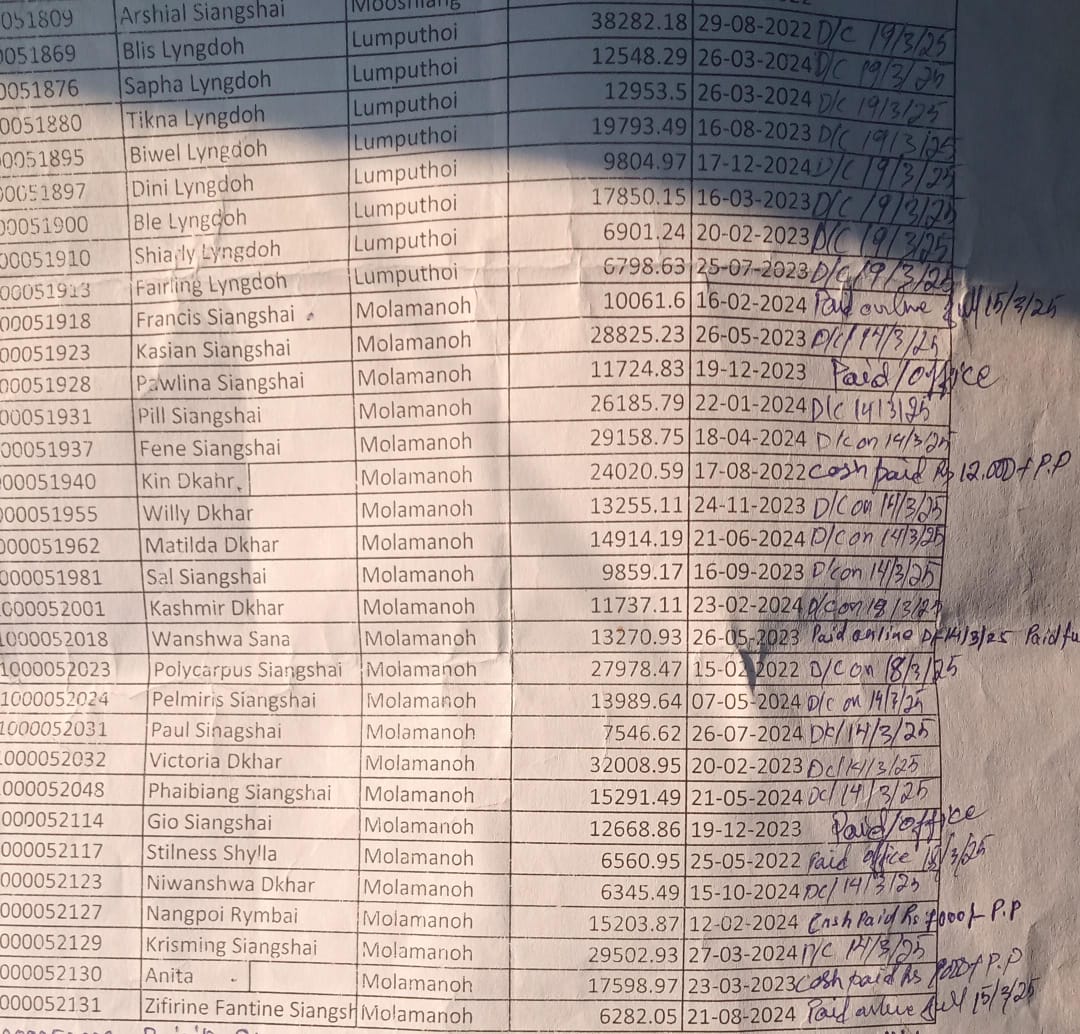 051809 Arshial Siangshai Mooshlang
0051869 Blis Lyngdoh Lumputhoi 38282.18 29-08-2022 D/C 19/3/25
0051876 Sapha Lyngdoh Lumputhoi 12548.29 26-03-2024 D/C 19/3/25
0051880 Tikna Lyngdoh Lumputhoi 12953.5 26-03-2024 D/C 19/3/25
0051895 Biwel Lyngdoh Lumputhoi 19793.49 16-08-2023 D/C 19/3/25
0051897 Dini Lyngdoh Lumputhoi 9804.97 17-12-2024 D/C 19/3/25
0051900 Ble Lyngdoh Lumputhoi 17850.15 16-03-2023 D/C 19/3/25
0051910 Shiarly Lyngdoh Lumputhoi 6901.24 20-02-2023 D/C 19/3/25
00051913 Fairling Lyngdoh Lumputhoi 6798.63 25-07-2023 D/C 19/3/25
00051918 Francis Siangshai Molamanoh 10061.6 16-02-2024 Paid online full 15/3/25
00051923 Kasian Siangshai Molamanoh 28825.23 26-05-2023 D/C/ 14/3/25
00051928 Pawlina Siangshai Molamanoh 11724.83 19-12-2023 Paid/office
00051931 Pill Siangshai Molamanoh 26185.79 22-01-2024 D/C 14/3/25
00051937 Fene Siangshai Molamanoh 29158.75 18-04-2024 D/C on 14/3/25
000051940 Kin Dkahr Molamanoh 24020.59 17-08-2022 Cash paid Rs 12.000/- P.P
000051955 Willy Dkhar Molamanoh 13255.11 24-11-2023 D/C on 14/3/25
000051962 Matilda Dkhar Molamanoh 14914.19 21-06-2024 D/C on 14/3/25
000051981 Sal Siangshai Molamanoh 9859.17 16-09-2023 D/C on 14/3/25
1000052001 Kashmir Dkhar Molamanoh 11737.11 23-02-2024 D/C on 19/3/25
1000052018 Wanshwa Sana Molamanoh 13270.93 26-05-2023 Paid online 14/3/25 Paid fu
1000052023 Polycarpus Siangshai Molamanoh 27978.47 15-02-2022 D/C on 18/3/25
1000052024 Pelmiris Siangshai Molamanoh 13989.64 07-05-2024 D/C on 14/3/25
1000052031 Paul Sinagshai Molamanoh 7546.62 26-07-2024 DC/14/3/25
1000052032 Victoria Dkhar Molamanoh 32008.95 20-02-2023 DC/14/3/25
000052048 Phaibiang Siangshai Molamanoh 15291.49 21-05-2024 DC/14/3/25
000052114 Gio Siangshai Molamanoh 12668.86 19-12-2023 Paid/office
000052117 Stilness Shylla Molamanoh 6560.95 25-05-2022 Paid office 18/3/25
000052123 Niwanshwa Dkhar Molamanoh 6345.49 15-10-2024 DC/14/3/25
000052127 Nangpoi Rymbai Molamanoh 15203.87 12-02-2024 Cash Paid Rs P.P
000052129 Krisming Siangshai Molamanoh 29502.93 27-03-2024 D/C 14/3/25
000052130 Anita Molamanoh 17598.97 23-03-2023 Cash paid Rs P.P
000052131 Zifirine Fantine Siangsh Molamanoh 6282.05 21-08-2024 Paid online full 15/3/25